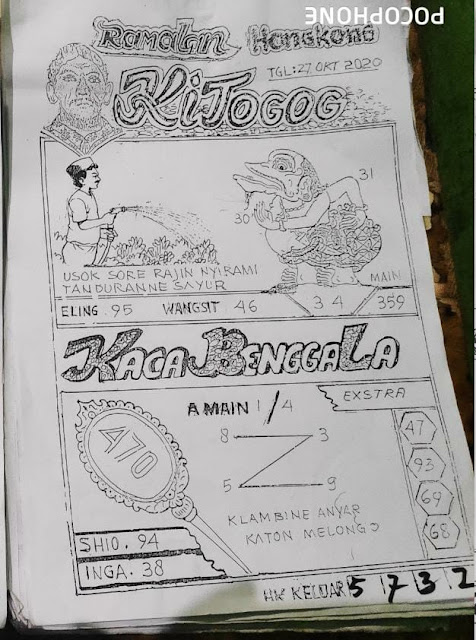 POCOPHONE
Ramalan Hongkong
TGL: 27 OKT 2020
KiTOGOG
31
30
USOK SORE RAJIN NYIRAMI
TANDURANNE SAYUR
MAIN
ELING. 95 WANGSIT. 46 34 359
KACA BENGGALA
A MAIN 1/4
EXSTRA
8 3
5 9
A70
47
93
69
68
KLAMBINE ANYAR
KATON MELONG2
SHIO. 94
INGA. 38
HK KELUAR 5732